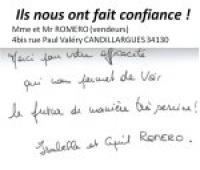 Ils nous ont fait confiance !
Mme et Mr ROMERO (vendeurs)
4bis rue Paul Valéry CANDILLARGUES 34130
Merci pour votre efficacité
qui nous permet de voir
le futur de manière très sereine !
Isabelle et Cyril ROMERO.